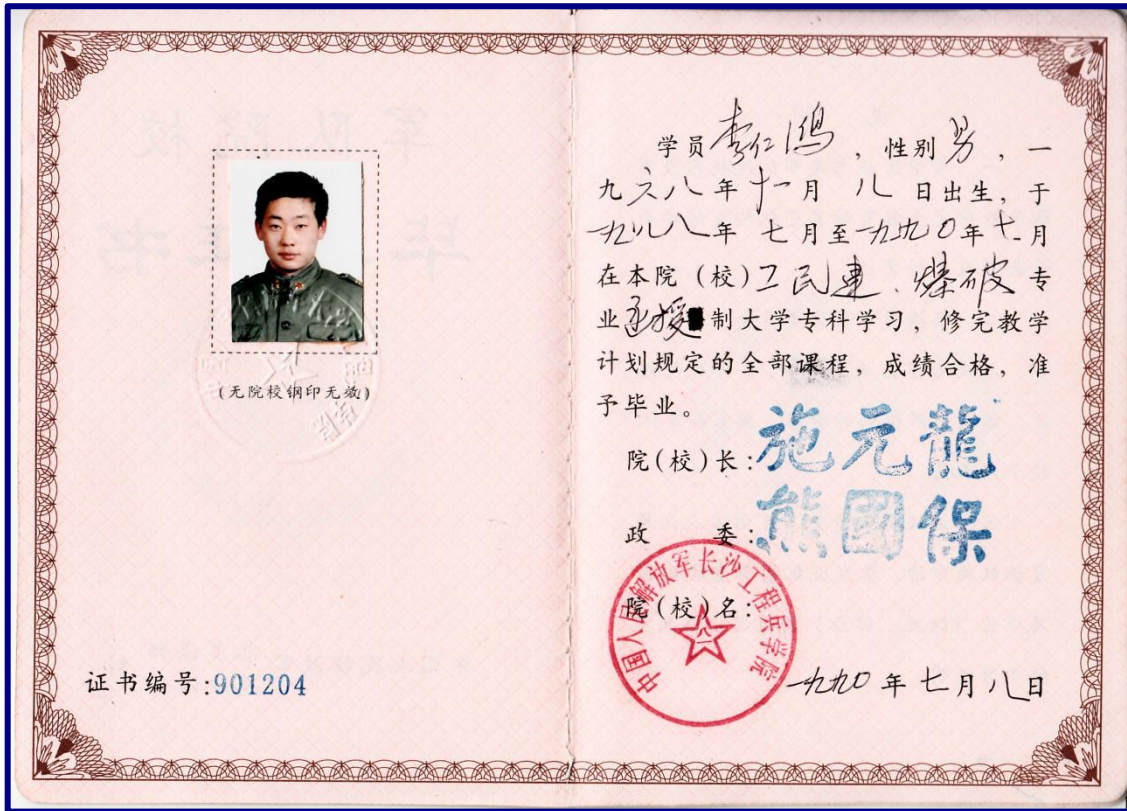 (无院校钢印无效)
证书编号:901204
学员李仁鸿，性别男，一
九六八年十一月八日出生，于
一九八八年七月至一九九0年七月
在本院(校)工民建、爆破专
业函授制大学专科学习，修完教学
计划规定的全部课程，成绩合格，准
予毕业。
院(校)长:施元龍
政委:熊國保
院(校)名:
中国人民解放军长沙工程兵学院
八一
一九九0年七月八日